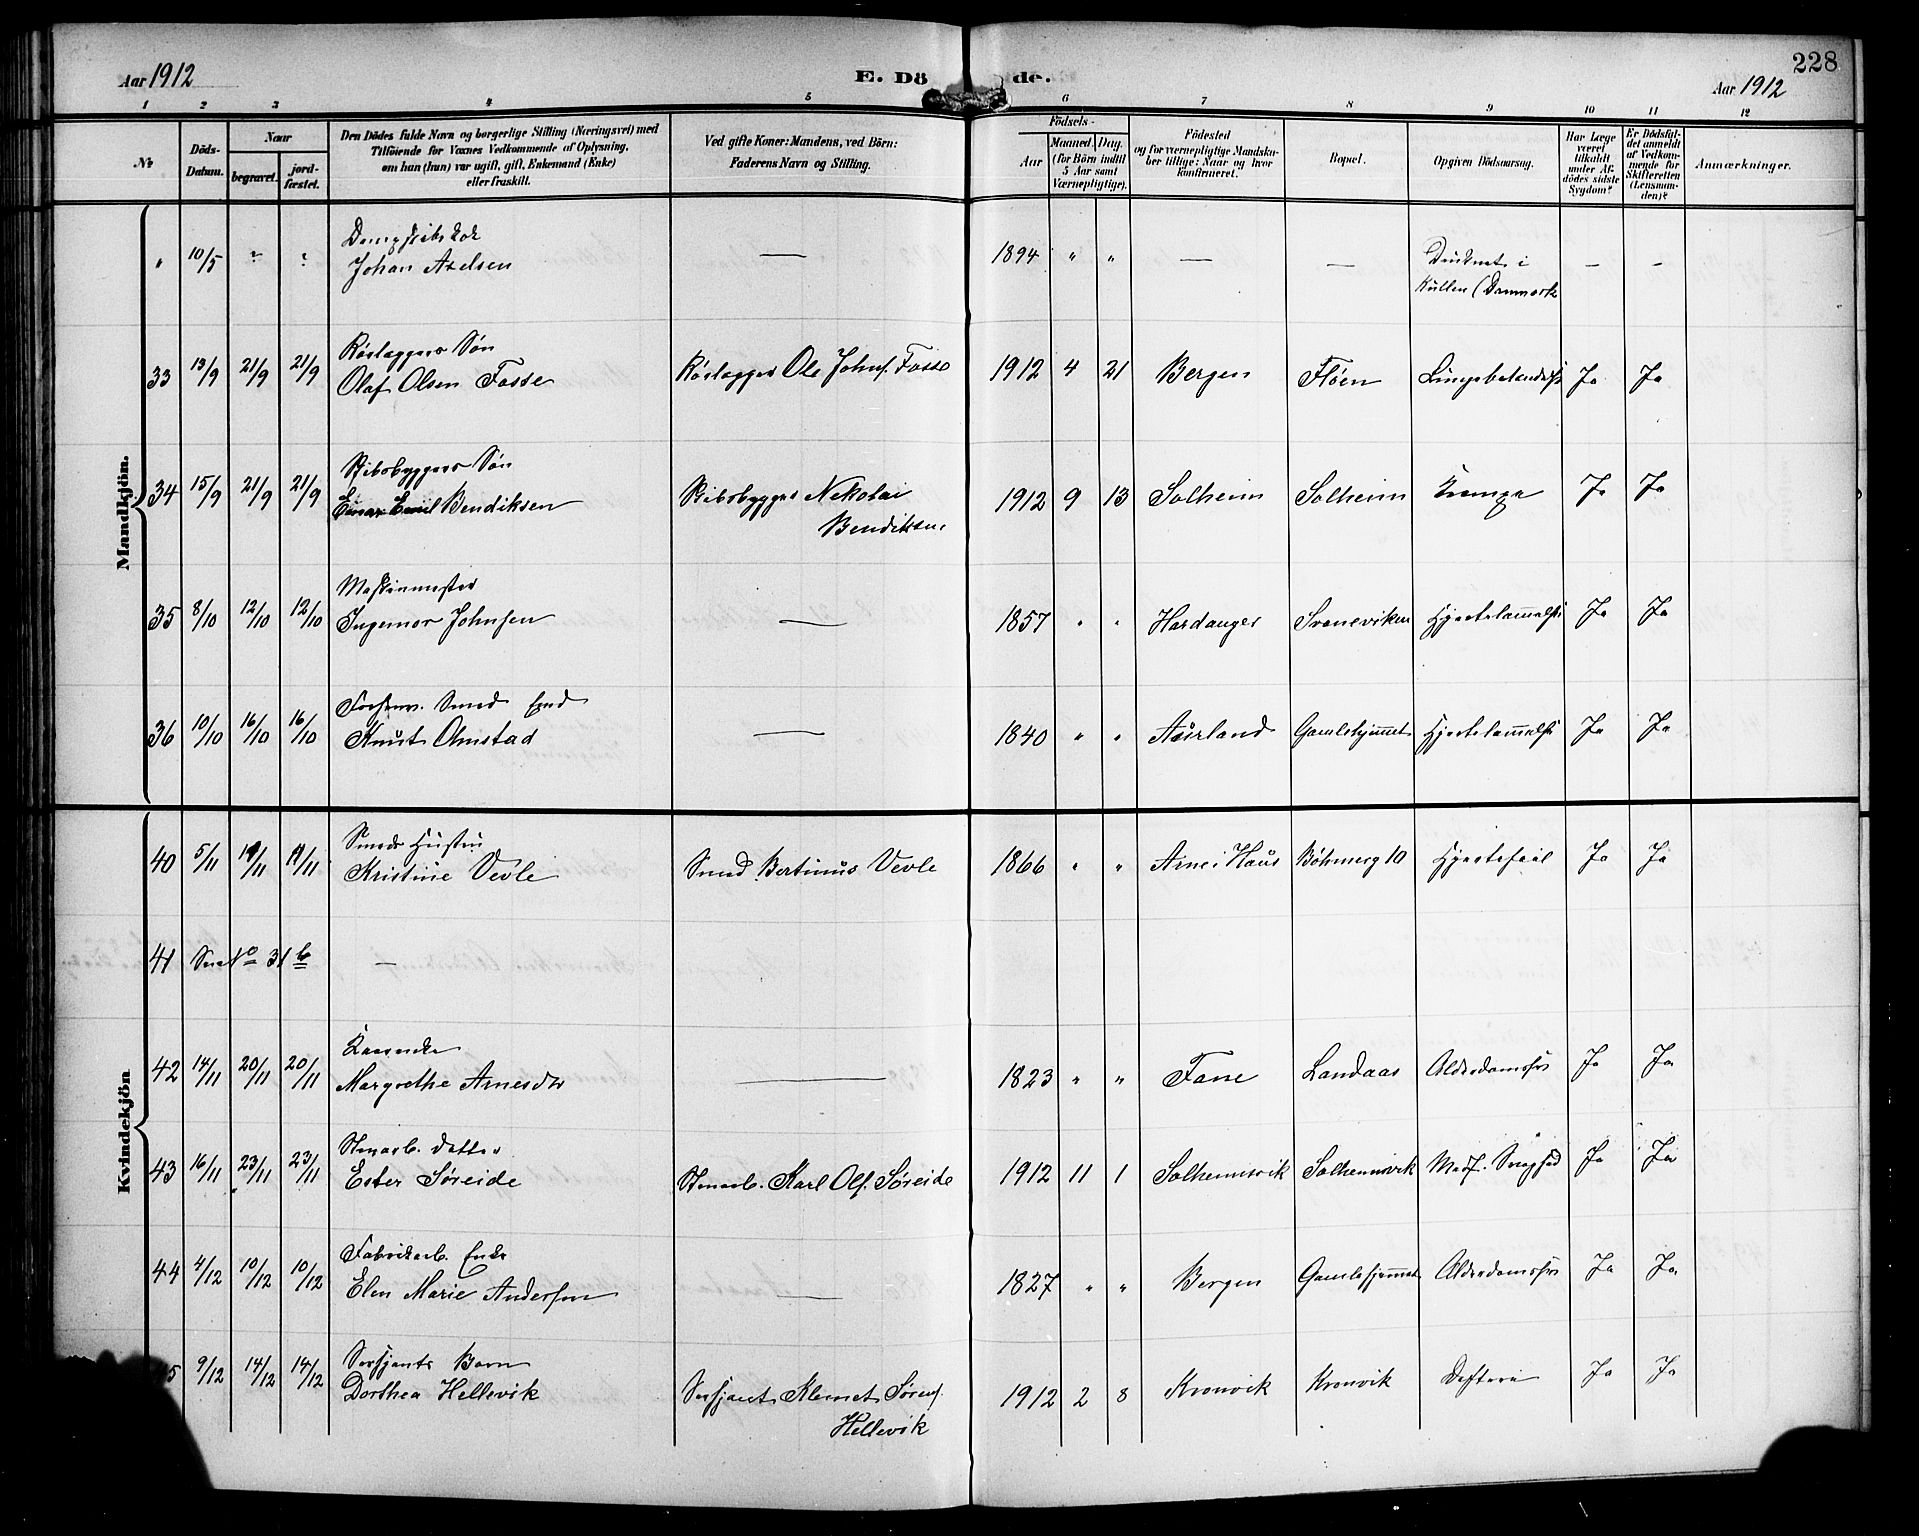 228
Aar 1912
E. Dö de.
Aar 1912
1 2 3 4 5 6 7 8 9 10 11 12
No
Döds-Datum.
Naar
begravet.
jordfæstet.
Den Dödes fulde Navn og borgerlige Stilling (Næringsvei) med
Tilföiende for Voxnes Vedkommende af Oplysning,
om han (hun) var ugift, gift, Enkemand (Enke)
eller fraskilt.
Ved gifte Koner: Mandens, ved Börn:
Faderens Navn og Stilling.
Födsels-
Aar
Maaned. Dag.
(for Börn indtil
5 Aar samt
Værnepligtige).
Födested
og for værnepligtige Mandskaber tillige: Naar og hvor
konfirmeret.
Bopæl.
Opgiven Dödsaarsag.
Har Læge
været
tilkaldt
under Afdödes sidste
Sygdom?
Er Dödsfaldet anmeldt
af Vedkommende for
Skifteretten
(Lensmanden)?
Anmærkninger.
Mandkjön.
Johan Axelsen
" 10/5 " " — 1894 " " — — i — —
Kullen (Danmark
Søn
33 13/9 21/9 21/9 Olaf Olsen Fosse Ole Johns. Fosse 1912 4 21 Bergen Fløen Ja Ja
Skibsbyggers Søn
34 15/9 21/9 21/9 Einar Emil Bendiksen Skibsbygger Nikolai
Bendiksen 1912 9 13 Solheim Solheim Krampe Ja Ja
Maskinmester
35 8/10 12/10 12/10 Ingemar Johnsen — 1857 " " Hardanger Svaneviken Ja Ja
Smed
36 10/10 16/10 16/10 Knut Onstad — 1840 " " Aurland Gamlehjemmet Ja Ja
Kvindekjön
Smeds Hustru
40 5/11 11/11 11/11 Kristine Vevle Smed Bertinus Vevle 1866 " " Arne i Haus Böhmerg 10 Hjertefeil Ja Ja
41 No 31 b —
42 14/11 20/11 20/11 Margrethe Arnesdtr — 1823 " " Fane Landaas Alderdomssvs Ja Ja
Stenarb. datter
43 16/11 23/11 23/11 Ester Søreide Stenarb. Karl Ols. Søreide 1912 11 1 Solheimsvik Solheimsvik Medf. Ja Ja
Fabrikarb. Enke
44 4/12 10/12 10/12 Elen Marie Andersen — 1827 " " Bergen Gamlehjemmet Alderdomssvs Ja Ja
Sersjants Barn
5 9/12 14/12 14/12 Dorthea Hellevik Sersjant Klemet Sørens.
Hellevik 1912 2 8 Kronvik Kronvik Difteri Ja Ja